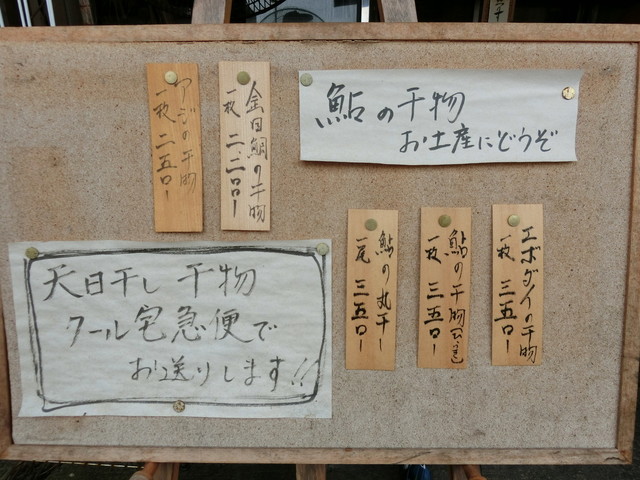 鮎の干物
お土産にどうぞ
金目鯛の干物
一枚 二、二〇〇ー
アジの干物
一枚 二五〇ー
エボダイの干物
一枚 三五〇ー
鮎の干物
一枚 三五〇ー
鮎の丸干ー
一尾 三五〇ー
天日干し 干物
クール宅急便で
お送りします!!